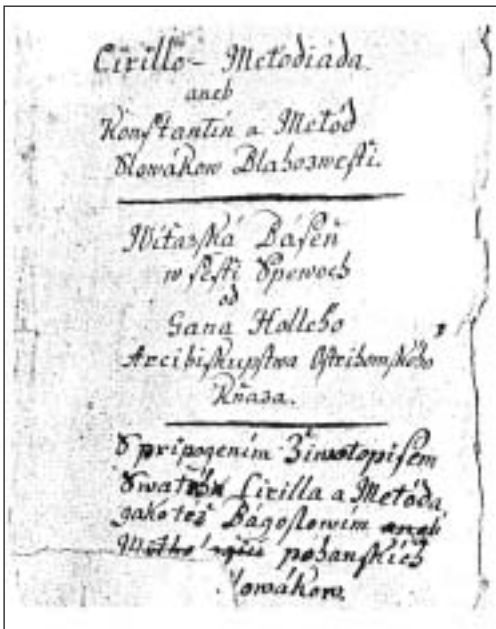 Cirillo-Metodiáda
aneb
Konstantín a Metód
Slowákow Blahozwesti.
Wíťazská Báseň
w šesti Spewoch
od
Gana Hollého
Arcibiskupstwa Ostrihomského
Kňaza.
S pripogením Žiwotopisem
Swatých Cirilla a Metóda,
gakotež Bágoslowím
pohanskích
Slowákow.